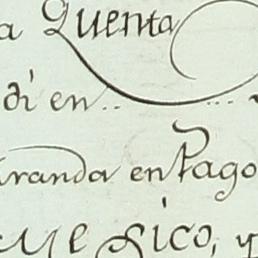 a Quenta
di en.. ...
randa en Pago
Me Sico, y